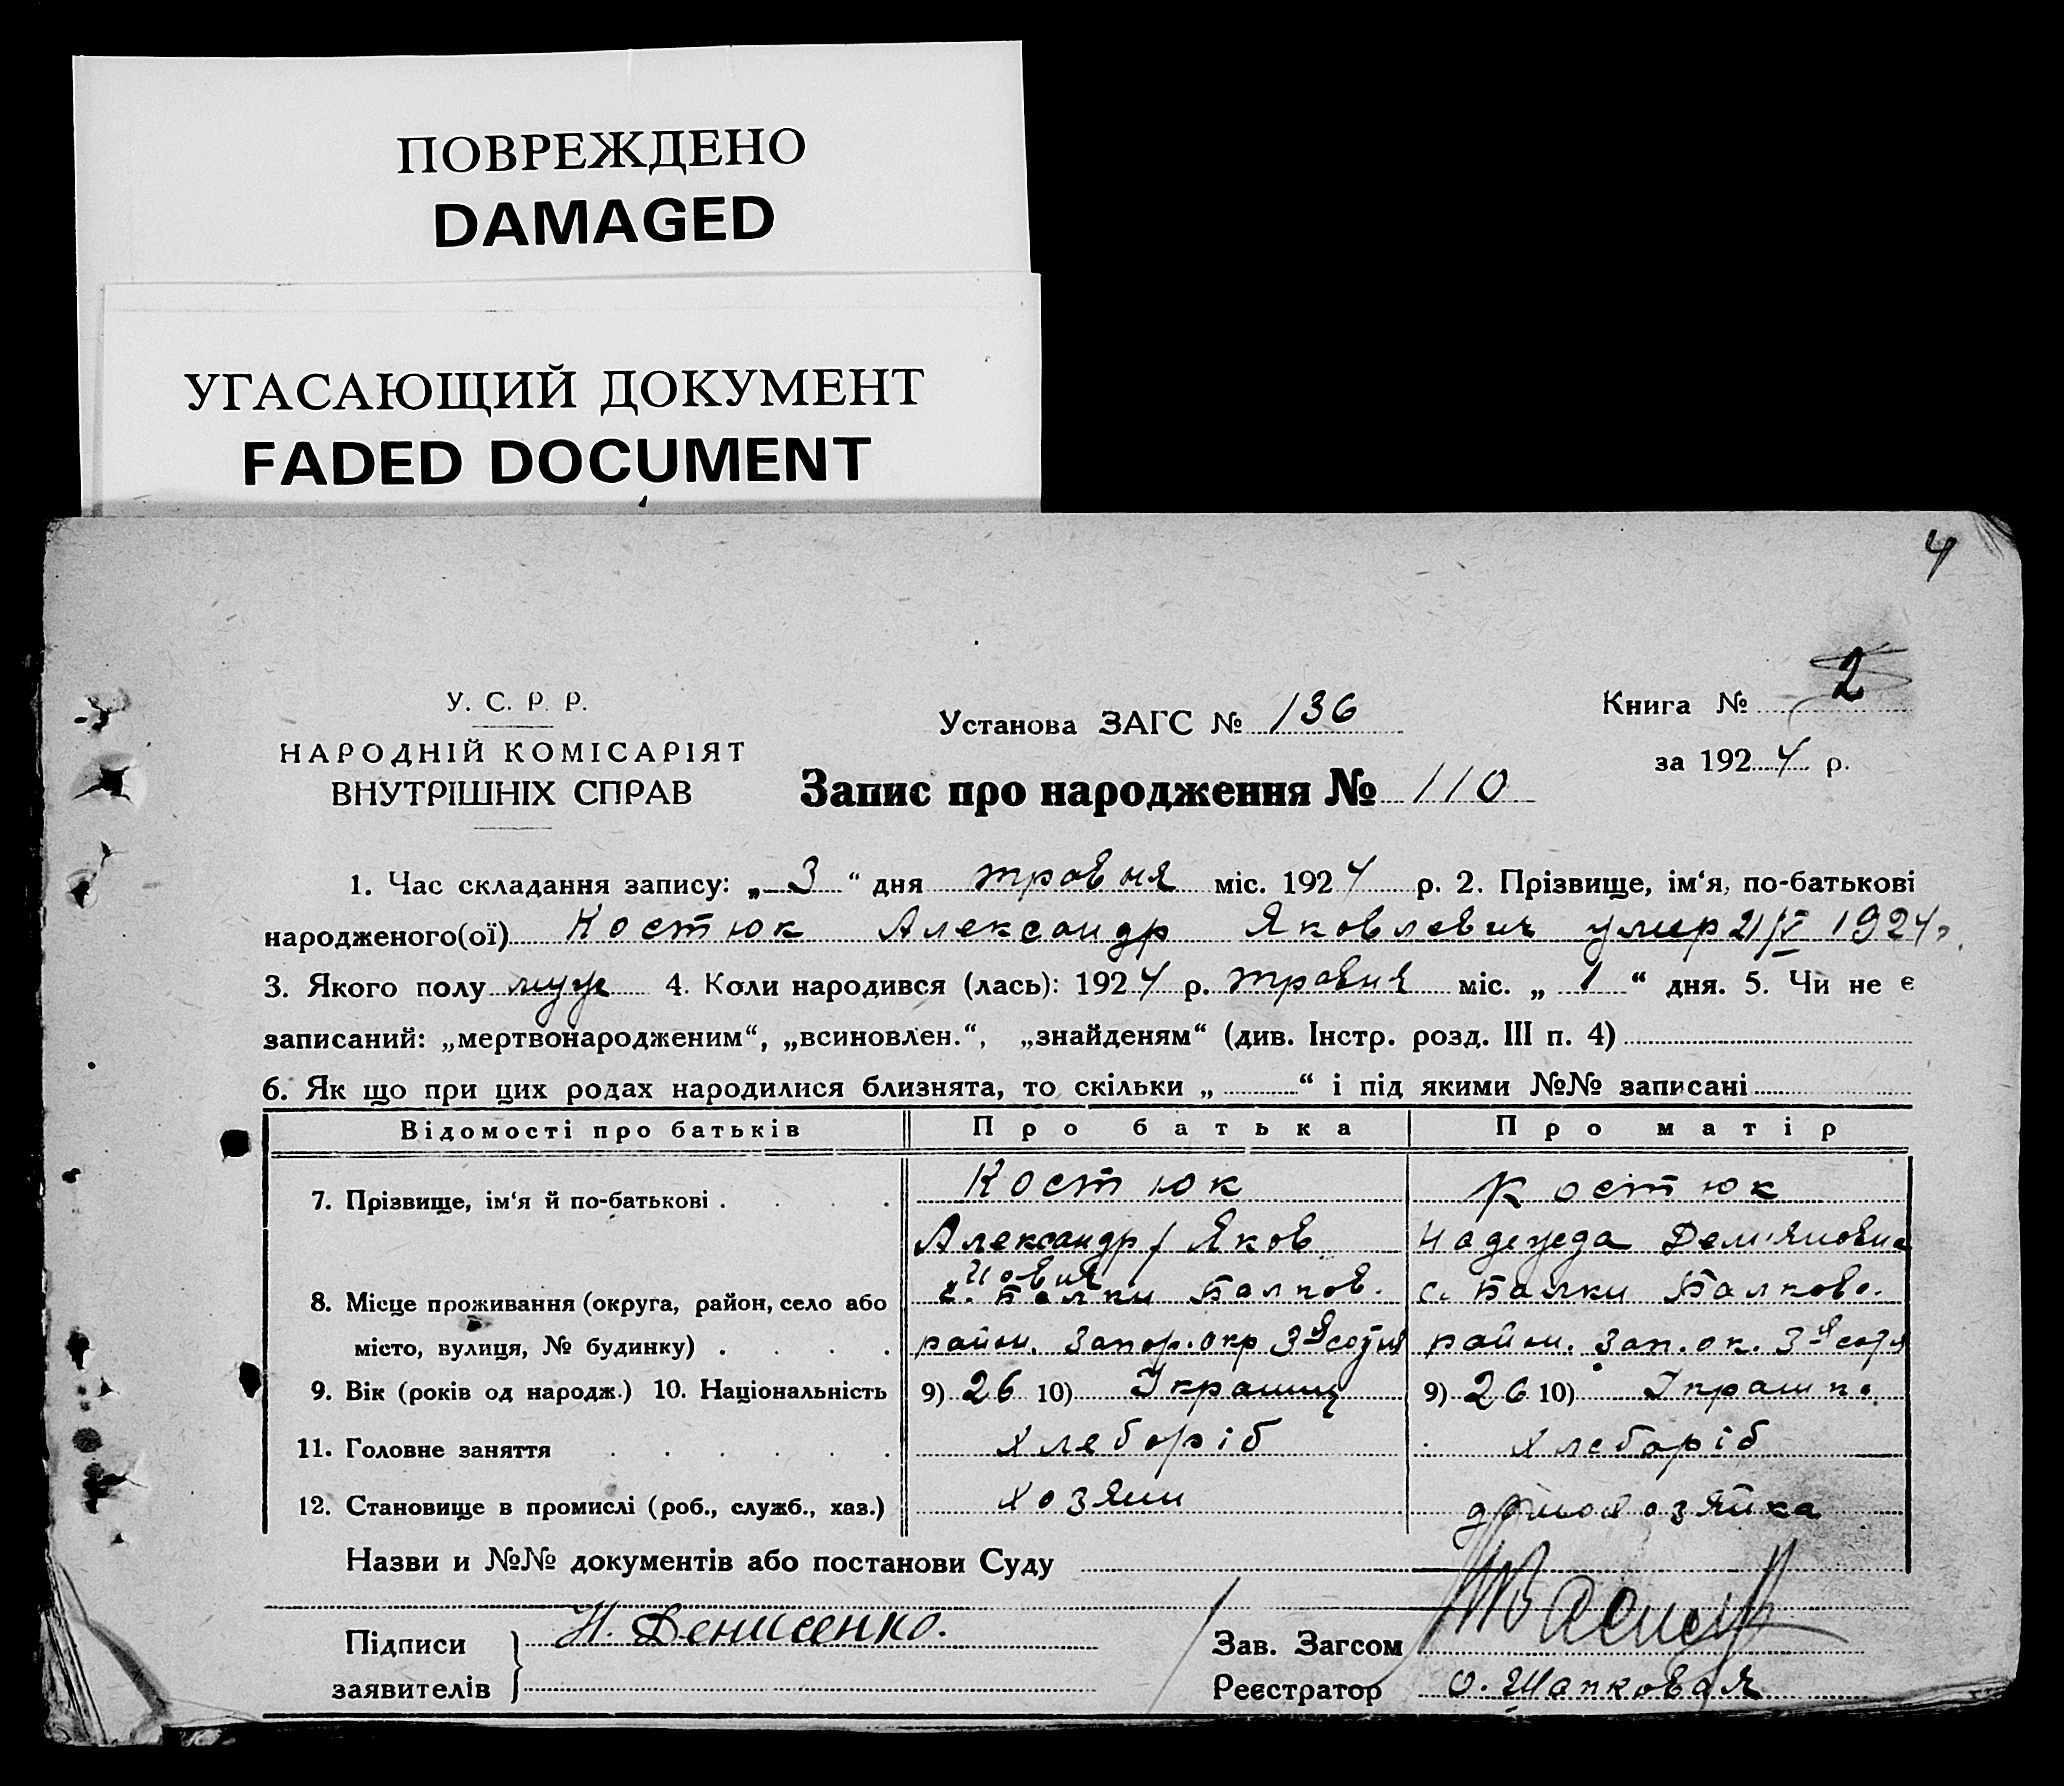 ПОВРЕЖДЕНО
DAMAGED
УГАСАЮЩИЙ ДОКУМЕНТ
FADED DOCUMENT
4
У. С. Р. Р.
НАРОДНІЙ КОМІСАРІЯТ
ВНУТРІШНІХ СПРАВ
Установа ЗАГС № 136
Книга № 2
за 1924 р.
Запис про народження № 110
1. Час складання запису: „ 3 “ дня травня міс. 1924 р. 2. Прізвище, ім‘я, по-батькові
народженого(ої) Костюк Александр Яковлевич умир 21/V 1924 р.
3. Якого полу муж 4. Коли народився (лась): 1924 р. травня міс. „ 1 “ дня. 5. Чи не є
записаний: „мертвонародженим“, „всиновлен.“, „знайденям“ (див. Інстр. розд. III п. 4)
6. Як що при цих родах народилися близнята, то скільки „ “ і під якими №№ записані
Відомості про батьків Про батька Про матір
7. Прізвище, ім‘я й по-батькові . Костюк Костюк
Александр / Яков Надежда Дем'яновна
8. Місце проживання (округа, район, село або с. Балки Балков. с. Балки Балково.
місто, вулиця, № будинку) . район. Запор. окр 3я сотня район. Зап. ок. 3я сотя
9. Вік (років од народж.) 10. Національність 9) 26 10) Україниц 9) 26 10) Україн к.
11. Головне заняття хлеборіб хлеборіб
12. Становище в промислі (роб., служб., хаз.) хозяин домохозяйка
Назви и №№ документів або постанови Суду
Підписи Н. Денисенко. Зав. Загсом
заявителів Реєстратор О. Шапковая